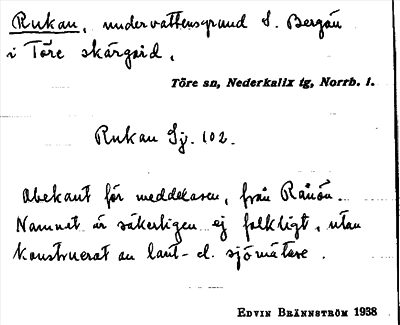 Rukan, undervattensgrund S. Bergön
i Töre skärgård.
Töre sn, Nederkalix tg, Norrb. l.
Rukan Sj. 102.
Obekant för meddelaren, från Rånön.
Namnet är säkerligen ej folkligt, utan
konstruerat av lant- el. sjömätare.
EDVIN BRÄNNSTRÖM 1938